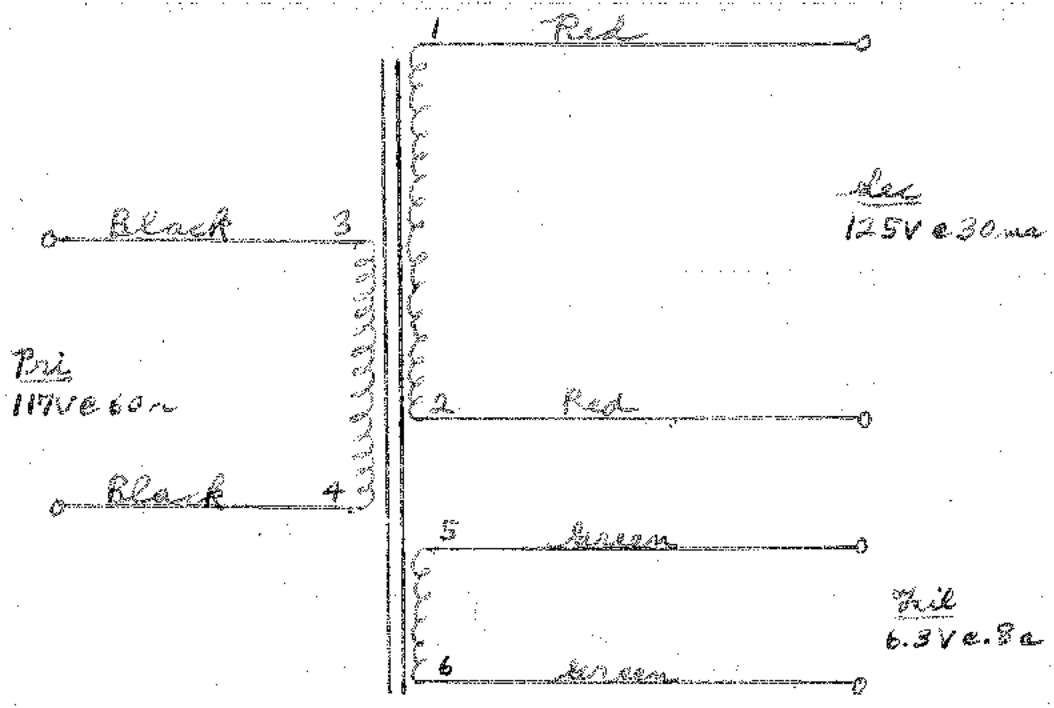 1 Red
Black 3
Sec
125V @ 30 ma
Pri
117V @ 60~
2 Red
Black 4
5 Green
Fil
6.3V @ .8a
6 Green